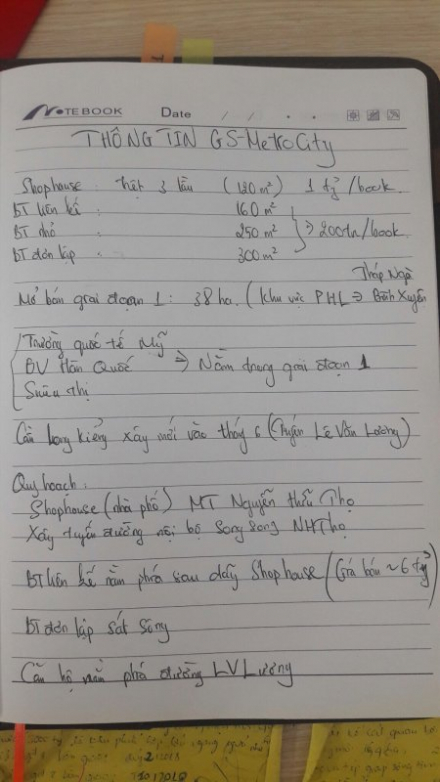 NOTEBOOK Date / / . .
THÔNG TIN GS-MetroCity
Shophouse : trệt 3 lầu (120 m²) 1 tỷ /book.
BT liên kế : 160 m²
BT nhỏ : 250 m² => 200tr/book
BT đơn lập 300 m²
Tháp Ngà
Mở bán giai đoạn 1: 38 ha. (Khu vực PHL => Bình Xuyên
Trường quốc tế Mỹ
BV Hàn Quốc => Nằm trong giai đoạn 1
Siêu thị
Cầu Long Kiểng xây mới vào tháng 6 (Tuyến Lê Văn Lương)
Quy hoạch.
Shophouse (nhà phố) MT Nguyễn Hữu Thọ
Xây tuyến đường nội bộ song song NHThọ
BT liên kế nằm phía sau dãy Shophouse (Giá bán ~ 6 tỷ)
BT đơn lập sát sông
Căn hộ nằm phía đường LVLương